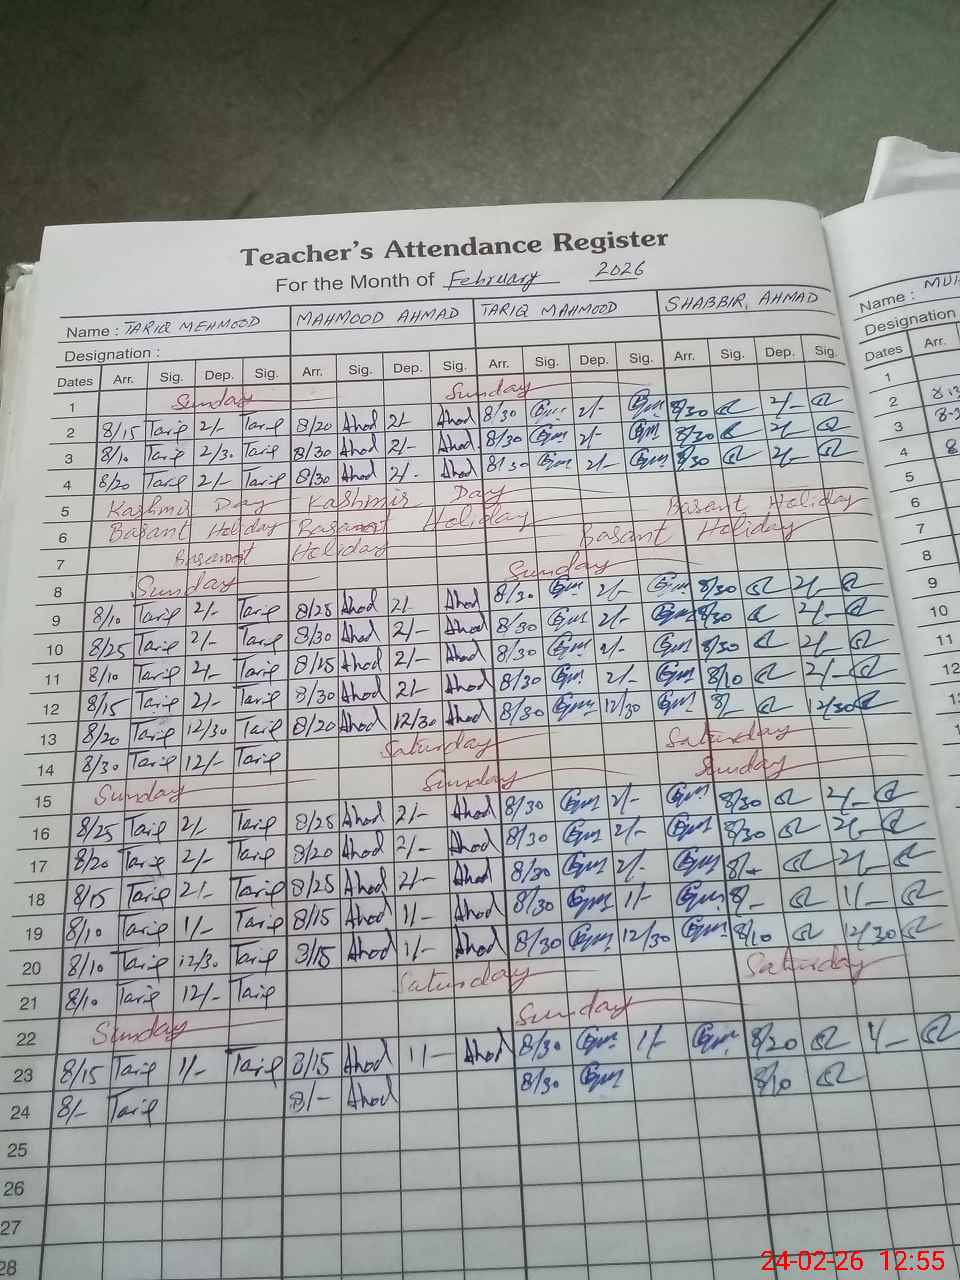 Teacher's Attendance Register
For the Month of February 2026
Name : TARIQ MEHMOOD MAHMOOD AHMAD TARIQ MAHMOOD SHABBIR AHMAD Name :
Designation : Designation
Dates Arr. Sig. Dep. Sig. Arr. Sig. Dep. Sig. Arr. Sig. Dep. Sig. Arr. Sig. Dep. Sig. Dates Arr.
1 Sunday Sunday 1
2 8/15 Tariq 2/- Tariq 8/20 Ahod 2/- Ahod 8/30 2/- 8/30 2/- 2
3 8/10 Tariq 2/30 Tariq 8/30 Ahod 2/- Ahod 8/30 2/- 8/30 2/- 3
4 8/20 Tariq 2/- Tariq 8/30 Ahod 2/- Ahod 8/30 2/- 8/30 2/- 4
5 Kashmir Day Kashmir Day Basant Holiday 5
6 Basant Holiday Basant Holiday Basant Holiday 6
7 Basant Holiday 7
8 Sunday Sunday 8
9 8/10 Tariq 2/- Tariq 8/25 Ahod 2/- Ahod 8/30 2/- 8/30 2/- 9
10 8/25 Tariq 2/- Tariq 8/30 Ahod 2/- Ahod 8/30 2/- 8/30 2/- 10
11 8/10 Tariq 2/- Tariq 8/15 Ahod 2/- Ahod 8/30 2/- 8/30 2/- 11
12 8/15 Tariq 2/- Tariq 8/30 Ahod 2/- Ahod 8/30 2/- 8/10 2/- 12
13 8/20 Tariq 12/30 Tariq 8/20 Ahod 12/30 Ahod 8/30 12/30 8/- 12/30
14 8/30 Tariq 12/- Tariq Saturday Saturday
15 Sunday Sunday Sunday
16 8/25 Tariq 2/- Tariq 8/25 Ahod 2/- Ahod 8/30 2/- 8/30 2/-
17 8/20 Tariq 2/- Tariq 8/20 Ahod 2/- Ahod 8/30 2/- 8/30 2/-
18 8/15 Tariq 2/- Tariq 8/25 Ahod 2/- Ahod 8/30 2/- 2/-
19 8/10 Tariq 1/- Tariq 8/15 Ahod 1/- Ahod 8/30 1/- 8/- 1/-
20 8/10 Tariq 12/30 Tariq 8/15 Ahod 1/- Ahod 8/30 12/30 8/10 12/30
21 8/10 Tariq 12/- Tariq Saturday Saturday
22 Sunday Sunday
23 8/15 Tariq 1/- Tariq 8/15 Ahod 1/- Ahod 8/30 1/- 8/20
24 8/- Tariq 8/- Ahod 8/30 8/10
25
26
27
28
24-02-26 12:55